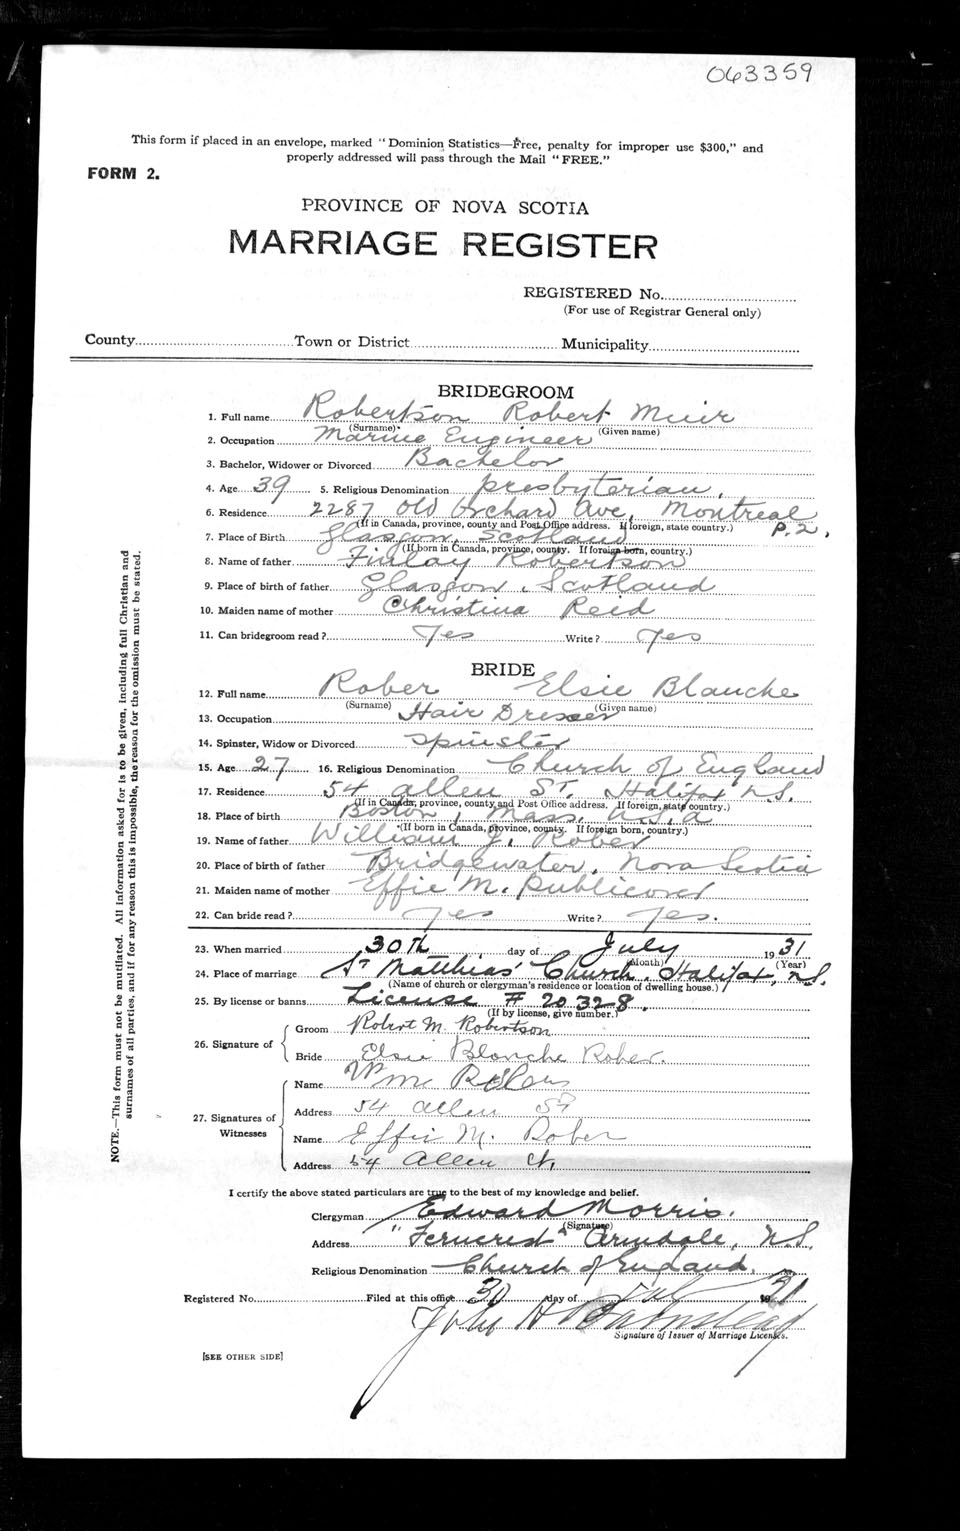 063359
This form if placed in an envelope, marked "Dominion Statistics—Free, penalty for improper use $300," and
properly addressed will pass through the Mail "FREE."
FORM 2.
PROVINCE OF NOVA SCOTIA
MARRIAGE REGISTER
REGISTERED No.
(For use of Registrar General only)
County Town or District Municipality
BRIDEGROOM
1. Full name Robertson Robert Muir
(Surname) (Given name)
2. Occupation Marine Engineer
3. Bachelor, Widower or Divorced Bachelor
4. Age 39 5. Religious Denomination presbyterian,
6. Residence 2287 Old Orchard Ave, Montreal
(If in Canada, province, county and Post Office address. If foreign, state country.) P.2,
7. Place of Birth Glasgow, Scotland
(If born in Canada, province, county. If foreign born, country.)
8. Name of father Finlay Robertson
9. Place of birth of father Glasgow, Scotland
10. Maiden name of mother Christina Reid
11. Can bridegroom read? Yes Write? Yes
BRIDE
12. Full name Rober Elsie Blanche
(Surname) (Given name)
13. Occupation Hair Dresser
14. Spinster, Widow or Divorced Spinster
15. Age 27 16. Religious Denomination Church of England
17. Residence 54 Allen St. Halifax N.S.
(If in Canada, province, county and Post Office address. If foreign, state country.)
18. Place of birth Boston, Mass. U.S.A
(If born in Canada, province, county. If foreign born, country.)
19. Name of father William J. Rober
20. Place of birth of father Bridgewater, Nova Scotia
21. Maiden name of mother Effie M. Publicover
22. Can bride read? Yes Write? Yes.
23. When married 30th day of July 1931
(Month) (Year)
24. Place of marriage St Matthias' Church, Halifax, N.S.
(Name of church or clergyman's residence or location of dwelling house.)
25. By license or banns License # 20328.
(If by license, give number.)
26. Signature of Groom Robert M. Robertson
Bride Elsie Blanche Rober.
27. Signatures of Witnesses Name Wm Rober
Address 54 Allen St
Name Effie M. Rober
Address 54 Allen St,
I certify the above stated particulars are true to the best of my knowledge and belief.
Clergyman Edward Morris.
(Signature)
Address "Ferncrest" Armdale, N.S.
Religious Denomination Church of England.
Registered No. Filed at this office 30 day of July 1931
John H
Signature of Issuer of Marriage Licenses.
[SEE OTHER SIDE]
NOTE.—This form must not be mutilated. All information asked for is to be given, including full Christian and
surnames of all parties, and if for any reason this is impossible, the reason for the omission must be stated.